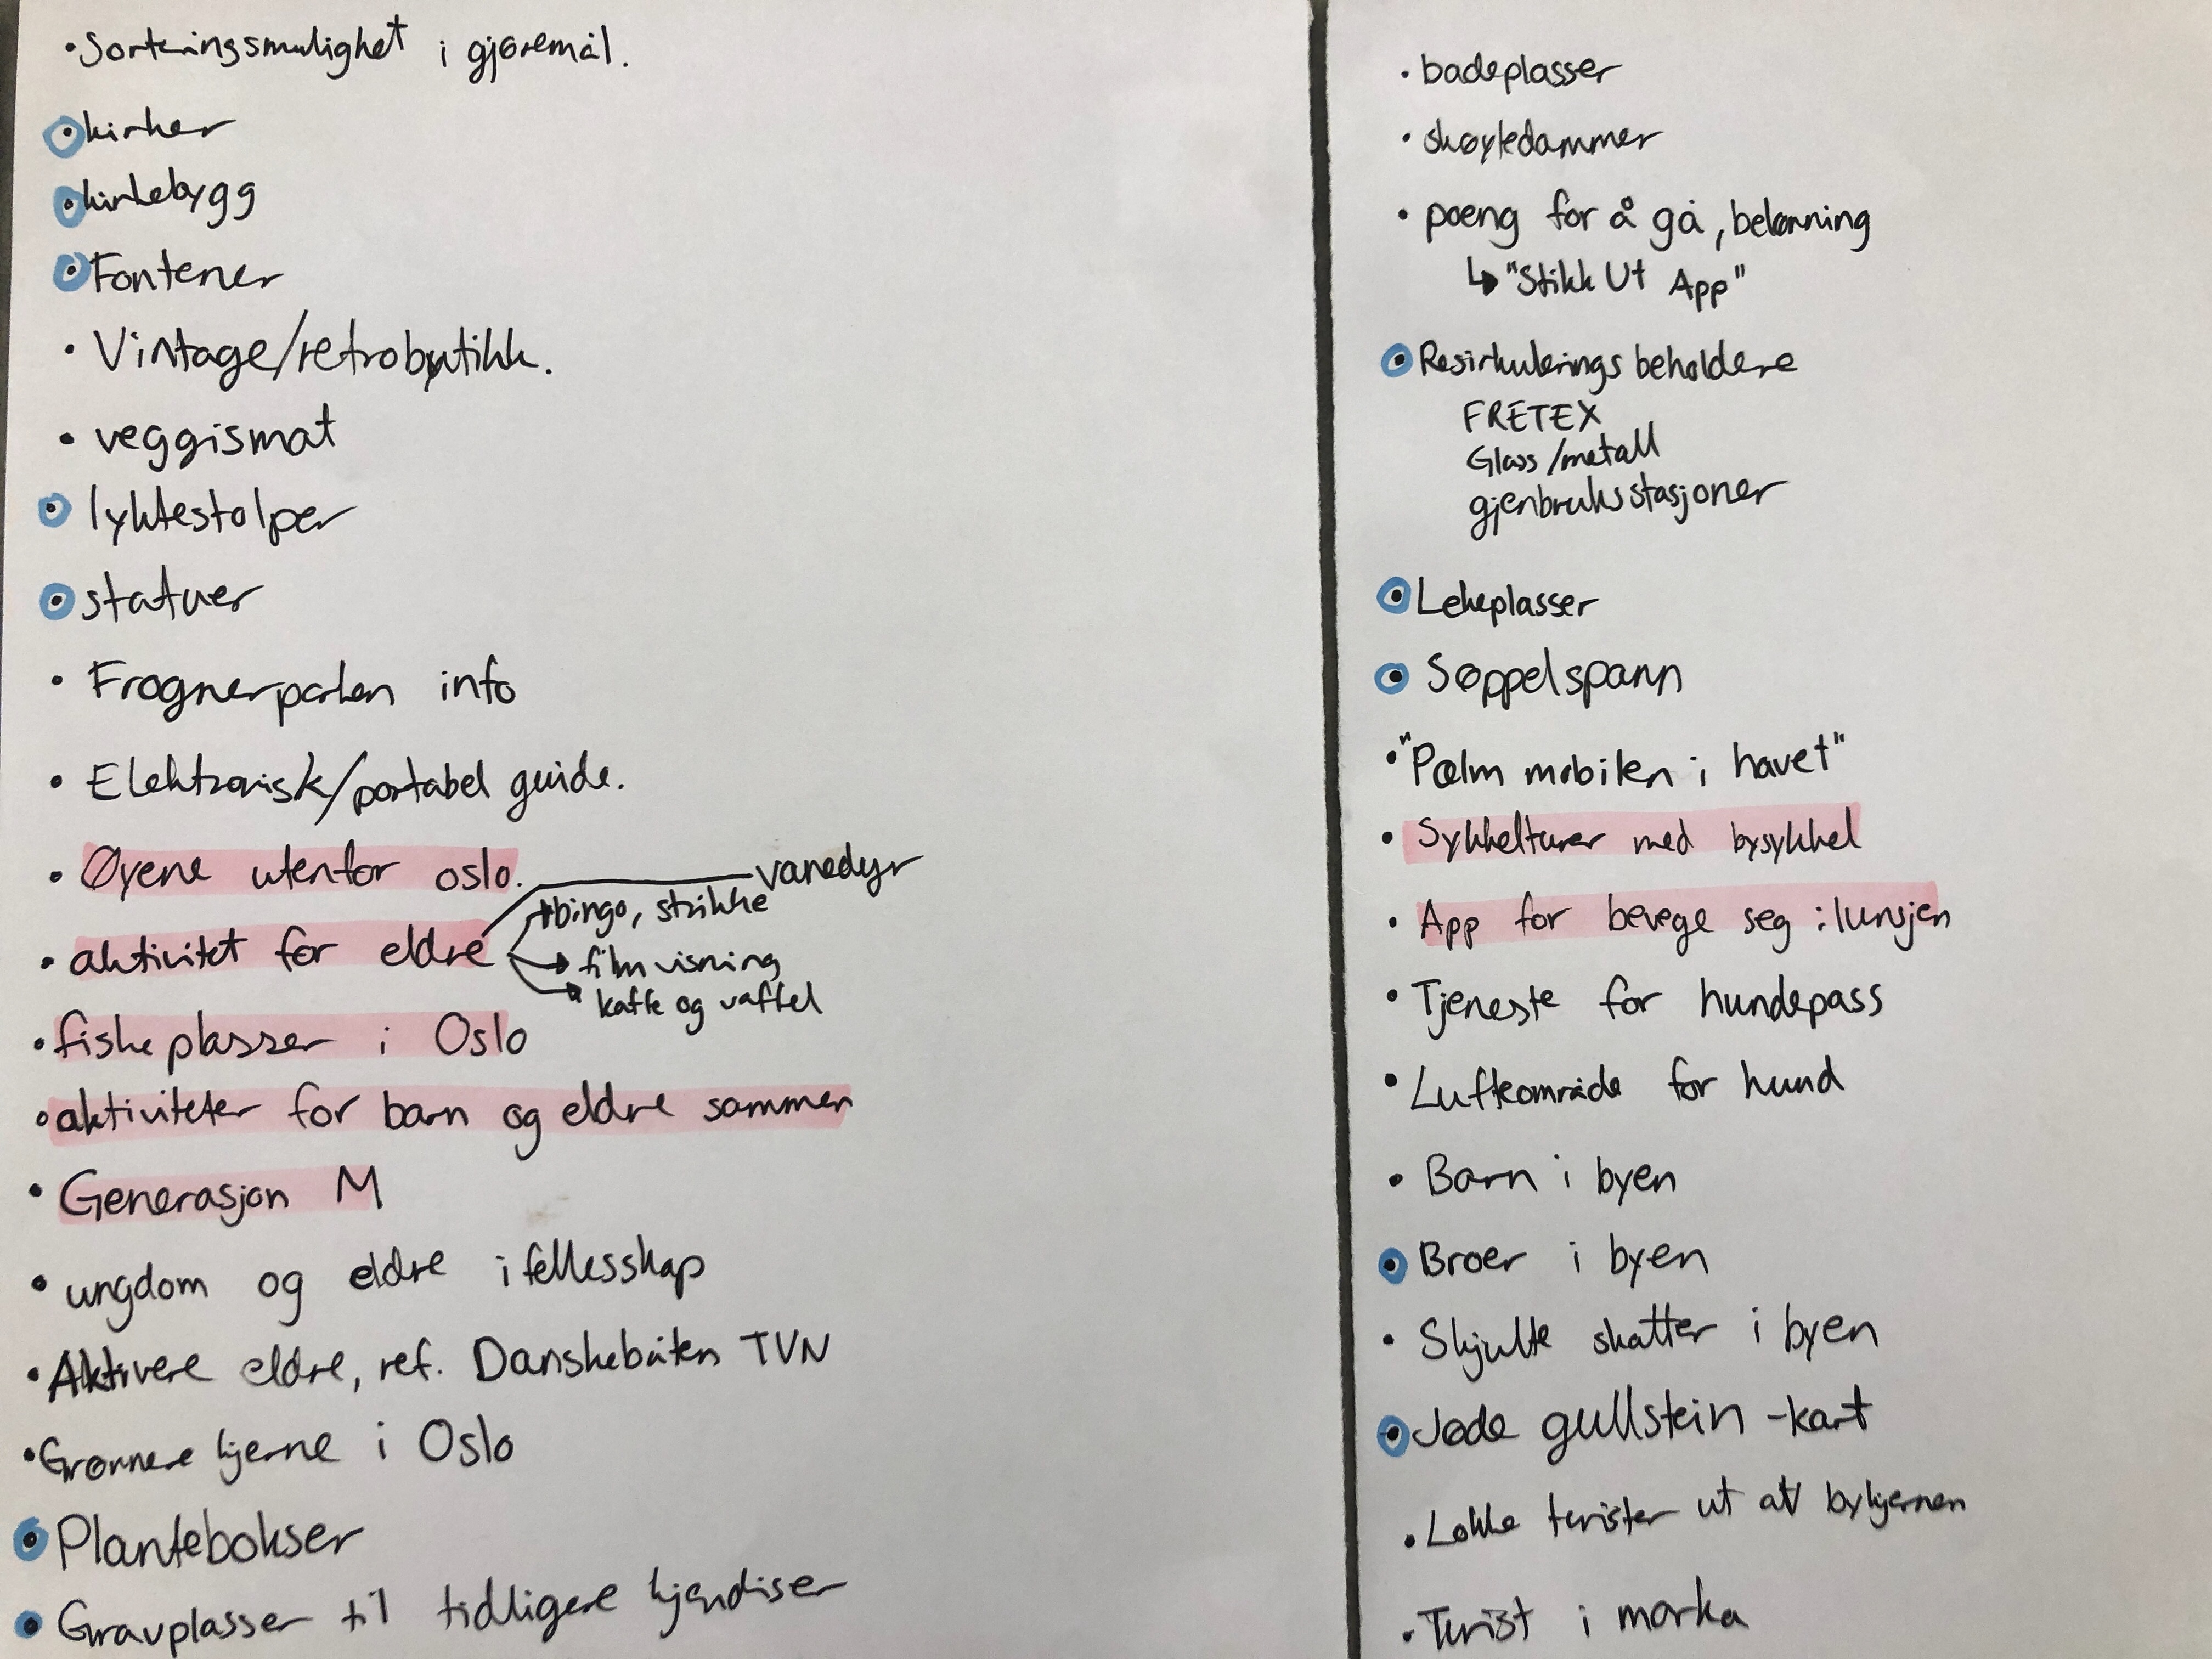 • Sorteringsmulighet i gjøremål.
• kirker
• kirkebygg
• Fontener
• Vintage/retrobutikk.
• veggismat
• lyktestolper
• statuer
• Frognerparken info
• Elektronisk/portabel guide.
• Øyene utenfor oslo.
vanedyr
• aktivitet for eldre
bingo, strikke
film visning
kaffe og vaffel
• fiskeplasser i Oslo
• aktiviteter for barn og eldre sammen
• Generasjon M
• ungdom og eldre i fellesskap
• Aktivere eldre, ref. Danskebåten TVN
• Grønnere kjerne i Oslo
• Plantebokser
• Gravplasser til tidligere kjendiser
• badeplasser
• skøytedammer
• poeng for å gå, belønning
↳ "Stikk Ut App"
• Resirkulerings beholdere
FRETEX
Glass/metall
gjenbruksstasjoner
• Lekeplasser
• Søppelspann
• "Pælm mobilen i havet"
• Sykkelturer med bysykkel
• App for bevege seg i lunsjen
• Tjeneste for hundepass
• Lufteområde for hund
• Barn i byen
• Broer i byen
• Skjulte skatter i byen
• Jøde gullstein -kart
• Lokke turister ut av bykjernen
• Turist i marka